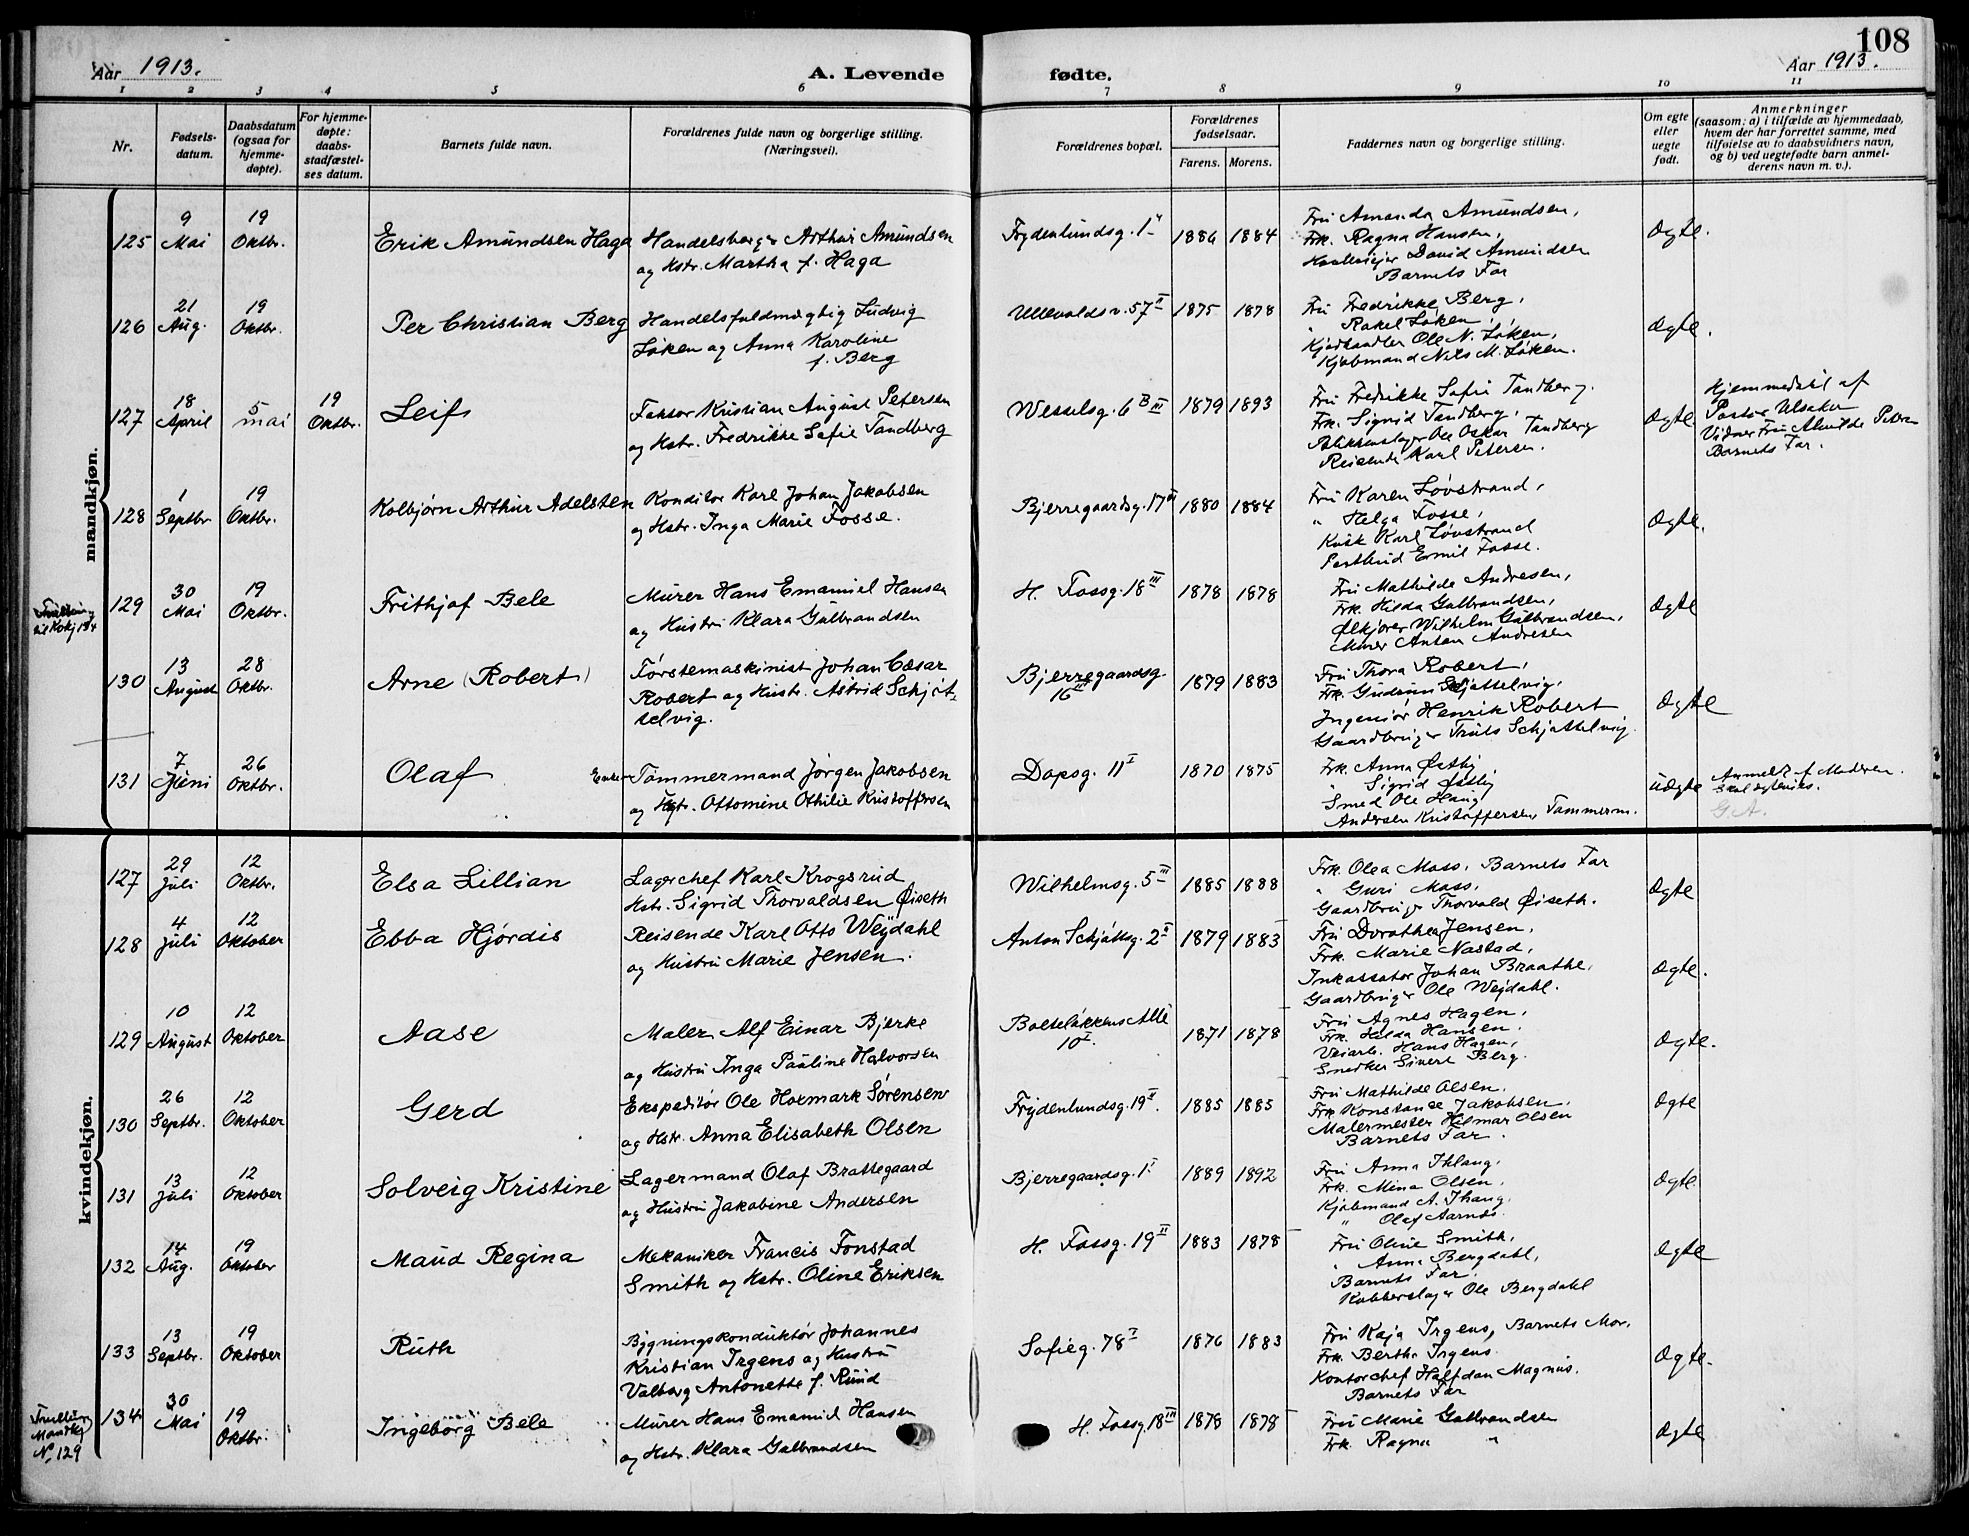 108
Aar 1913.
A. Levende fødte.
Aar 1913.
1 2 3 4 5 6 7 8 9 10 11
Nr.
Fødsels-
datum.
Daabsdatum
(ogsaa for
hjemme-
døpte).
For hjemme-
døpte:
daabs-
stadfæstel-
ses datum.
Barnets fulde navn.
Forældrenes fulde navn og borgerlige stilling.
(Næringsvei).
Forældrenes bopæl.
Forældrenes
fødselsaar.
Farens. Morens.
Faddernes navn og borgerlige stilling.
Om egte
eller
uegte
født.
Anmerkninger
(saasom: a) i tilfælde av hjemmedaab,
hvem der har forrettet samme, med
tilføielse av to daabsvidners navn,
og b) ved uegtefødte barn anmel-
derens navn m. v.).
mandkjøn.
125
9
Mai
19
Oktbr.
Erik Amundsen Haga
Handelsborger Arthur Amundsen
og Hstr. Martha f. Haga
Frydenlundsg. 1
1886 1884
Fru Amanda Amundsen,
Frk. Ragna Hansen,
David Amundsen
Barnets Far
Ægte.
126
21
Aug.
19
Oktbr.
Per Christian Berg
Handelsfuldmægtig Ludvig
Løken og Anna Karoline
f. Berg
Ullevoldsv. 57 II
1875 1878
Fru Fredrikke Berg,
" Rakel Løken,
Kjødhandler Ole N. Løken,
Kjøbmand Nils M. Løken.
Ægte.
127
18
April
5
mai
19
Oktbr.
Leif
Faktor Kristian August Petersen
og Hstr. Fredrikke Sofie Tandberg
Wesselsg. 6 B III
1879 1893
Fru Fredrikke Sofie Tandberg.
Frk. Sigrid Tandberg,
Blikkenslager Ole Oskar Tandberg
Reisende Karl Petersen.
Ægte
Hjemmedøbt af
Pastor
Vidner Fru
Barnets Far.
128
1
Septbr
19
Oktbr.
Kolbjørn Arthur Adelsten
Konditor Karl Johan Jakobsen
og Hstr. Inga Marie Fosse.
Bjerregaardsg. 17 III
1880 1884
Fru Karen Løvstrand,
" Helga Fosse,
Kusk Karl Løvstrand
Postbud Emil Fosse.
Ægte.
Tvilling
til Kvkj 134
129
30
Mai
19
Oktbr.
Frithjof Bele
Murer Hans Emanuel Hansen
og Hustru Klara Gulbrandsen
H. Fossg. 18 III
1878 1878
Fru Mathilde Andresen,
Frk. Hilda Gulbrandsen,
Ølkjører Wilhelm Gulbrandsen,
Murer Anton Andresen
Ægte
130
13
August
28
Oktbr.
Arne (Robert)
Førstemaskinist Johan Cæsar
Robert og Hustr. Astrid Schjøt-
telvig.
Bjerregaardsg
16 III
1879 1883
Fru Thora Robert,
Frk. Gudrun Schjøttelvig,
Ingeniør Henrik Robert
Gaardbruger Truls Schjøttelvig.
Ægte
131
7
Juni
26
Oktbr.
Olaf
Tømmermand Jørgen Jakobsen
og Hstr. Ottomine Othilie Kristoffersen
Dopsg. 11 I
1870 1875
Frk. Anna Østby
" Sigrid Østby
Smed Ole Haug
Andersen Kristoffersen, Tømmerm.
uægte
Anmeldt af Moderen.
Skal ægtevies.
G. A.
kvindekjøn.
127
29
Juli
12
Oktbr.
Elsa Lillian
Lagerchef Karl Krogsrud
Hstr. Sigrid Thorvaldsen Øiseth
Wilhelmsg. 5 III
1885 1888
Frk. Olea Moss, Barnets Far
" Guri Moss,
Gaardbruger Thorvald Øiseth.
Ægte
128
4
Juli
12
Oktober
Ebba Hjørdis
Reisende Karl Otto Weydahl
og Hustru Marie Jensen.
Anton Schjøttsg. 2 II
1879 1883
Fru Dorothea Jensen,
Frk. Marie Nastad,
Inkassator Johan Braathe,
Gaardbruger Ole Weydahl.
Ægte.
129
10
August
12
Oktober
Aase
Maler Alf Einar Bjerke
og Hustru Inga Pauline Halvorsen
Bolteløkkens Allé
10 I.
1871 1878
Fru Agnes Hagen,
Frk. Hilda Hansen.
Veiarb. Hans Hagen,
Snedker Sivert Berg.
Ægte.
130
26
Septbr.
12
Oktober
Gerd
Ekspeditør Ole Hormark Sørensen
og Hstr. Anna Elisabeth Olsen
Frydenlundsg. 19 II.
1885 1885
Fru Mathilde Olsen.
Frk Konstanse Jakobsen,
Malermester Hilmar Olsen
Barnets Far.
Ægte
131
13
Juli
12
Oktober
Solveig Kristine
Lagermand Olaf Brattegaard
og Hustru Jakobine Andersen
Bjerregaardsg. 1 I
1889 1892
Fru Anna Ihlang,
Frk. Mina Olsen,
Kjøbmand A. Ihang.
" Olaf Aarnæs.
Ægte
132
14
Aug.
19
Oktober
Maud Regina
Mekaniker Francis Fonstad
Smith og Hstr. Oline Eriksen
H. Fossg. 19 II
1883 1878
Fru Oline Smith,
" Anna Bergdahl,
Barnets Far.
Kobberslager Ole Bergdahl
Ægte
133
13
Septbr.
19
Oktober
Ruth
Bygningskonduktør Johannes
Kristian Irgens og Hustru
Valborg Antonette f. Ruud
Sofieg. 78 I
1876 1883
Fru Kaja Irgens, Barnets Mor.
Frk. Berthe Irgens.
Kontorchef Halfdan Magnus.
Barnets Far
Ægte.
Tvilling
Mandkj
No. 129
134
30
Mai
19
Oktbr.
Ingeborg Bele
Murer Hans Emanuel Hansen
og Hstr. Klara Gulbrandsen
H. Fossg. 18 III
1878 1878
Fru Marie Gulbrandsen
Frk. Ragna "
Ægte